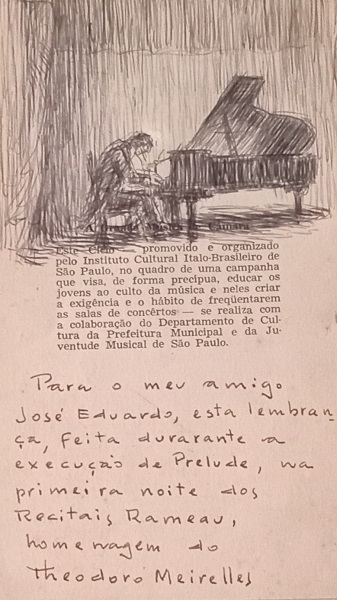 A Grande Música de Câmara
Êste Ciclo — promovido e organizado
pelo Instituto Cultural Italo-Brasileiro de
São Paulo, no quadro de uma campanha
que visa, de forma precípua, educar os
jovens ao culto da música e neles criar
a exigência e o hábito de freqüentarem
as salas de concêrtos — se realiza com
a colaboração do Departamento de Cul-
tura da Prefeitura Municipal e da Ju-
ventude Musical de São Paulo.
Para o meu amigo
José Eduardo, esta lembran-
ça, feita durarante a
execução de Prelude, na
primeira noite dos
Recitais Rameau,
homenagem do
Theodoro Meirelles